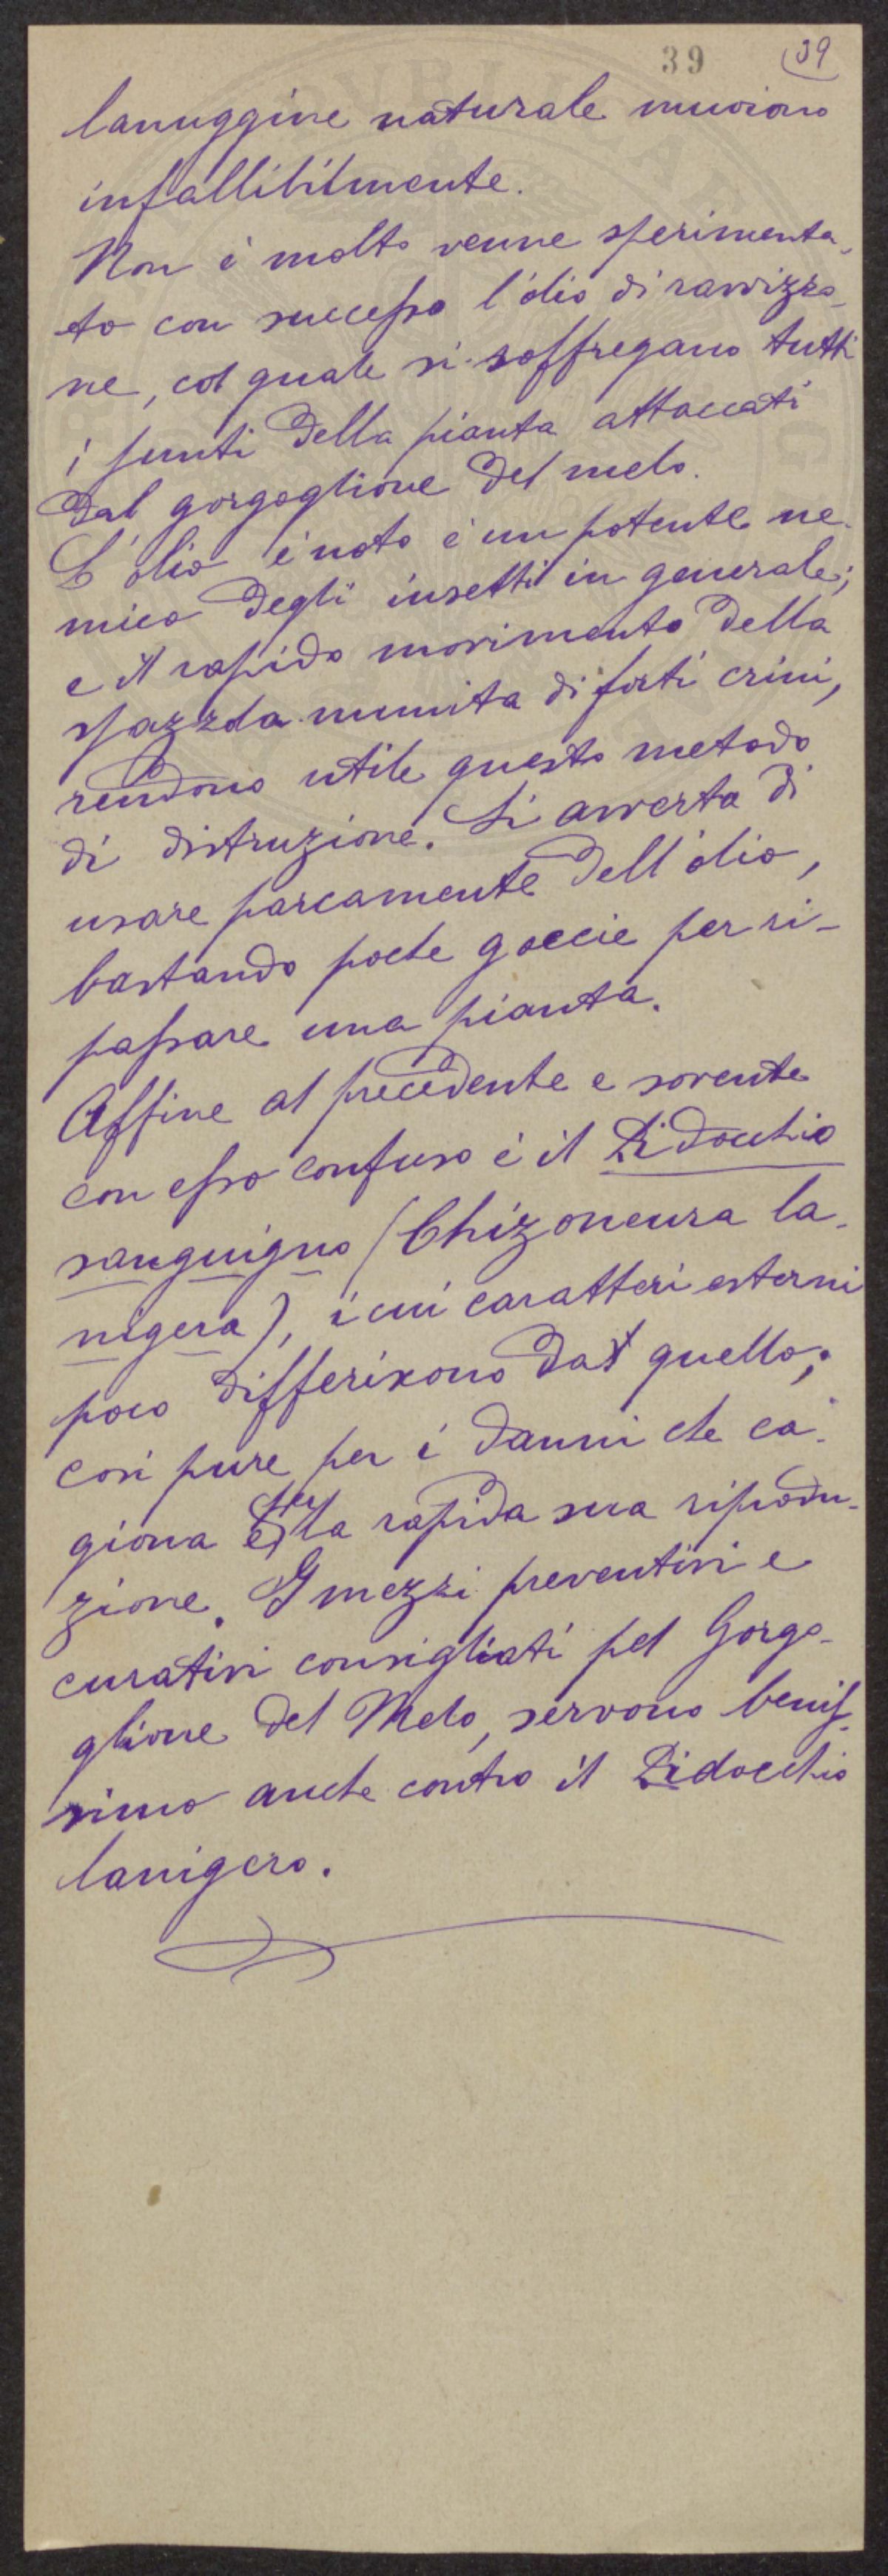 39 39
lanuggine naturale muoiono
infallibilmente.
Non è molto venne sperimenta-
to con successo l'olio di ravizzo-
ne, col quale si soffregano tutti
i punti della pianta attaccati
dal gorgoglione del melo.
L'olio è noto è un potente ne-
mico degli insetti in generale;
e il rapido movimento della
spazzola munita di forti crini,
rendono utile questo metodo
di distruzione. Si avverta di
usare parcamente dell'olio,
bastando poche goccie per ri-
passare una pianta.
Affine al precedente e sovente
con esso confuso è il Pidocchio
sanguigno (Chizoneura la-
nigera), i cui caratteri esterni
poco differiscono dal quello;
così pure per i danni che ca-
giona e per la rapida sua riprodu-
zione. I mezzi preventivi e
curativi consigliati pel Gorgo-
glione del Melo, servono benis-
simo anche contro il Pidocchio
lanigero.